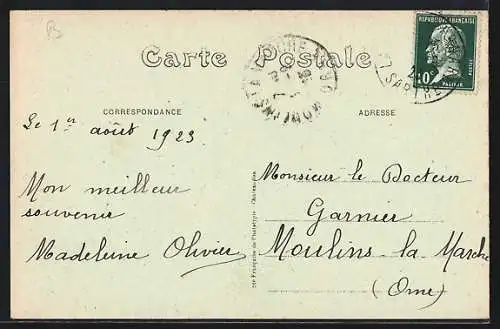 B
Carte Postale
REPUBLIQUE FRANÇAISE
10c
POSTES
CORRESPONDANCE
ADRESSE
Le 1er août 1923
Mon meilleur
souvenir
Madeleine Olivier
Monsieur le Docteur
Garnier
Moulins-la-Marche
(Orne)